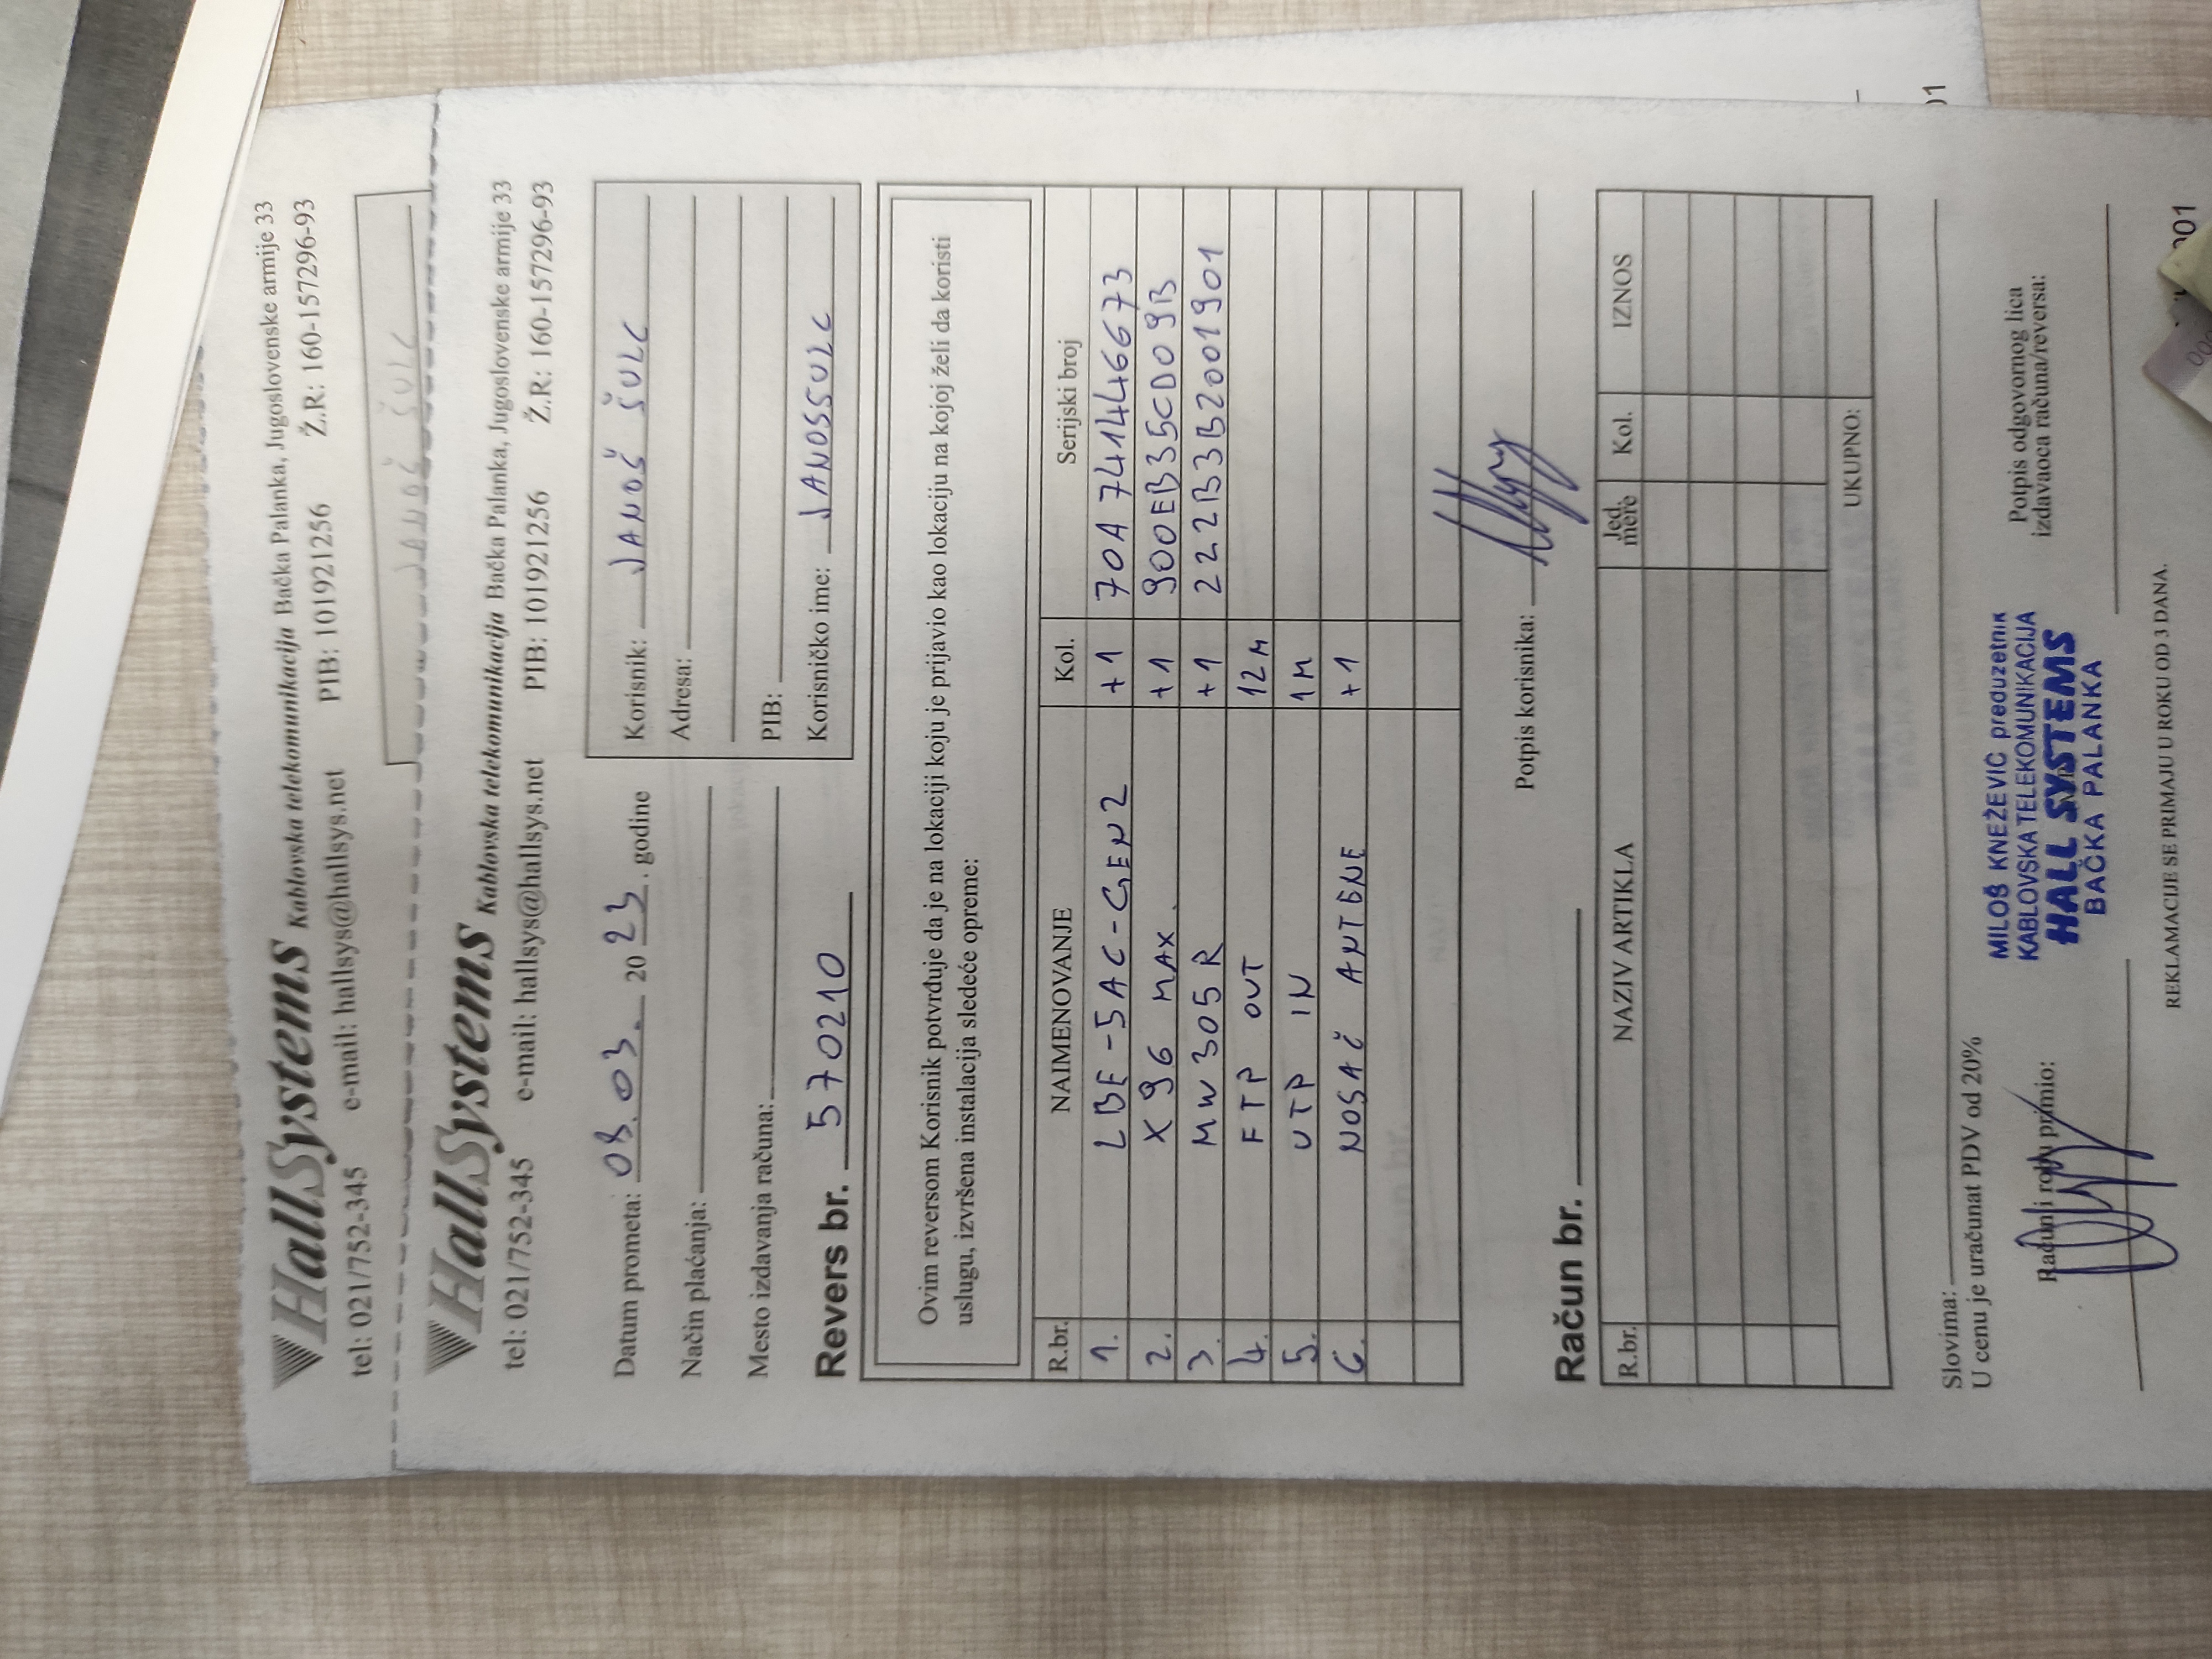 HallSystems Kablovska telekomunikacija Bačka Palanka, Jugoslovenske armije 33
tel: 021/752-345 e-mail: hallsys@hallsys.net PIB: 101921256 Ž.R: 160-157296-93
JANOŠ ŠULC
HallSystems Kablovska telekomunikacija Bačka Palanka, Jugoslovenske armije 33
tel: 021/752-345 e-mail: hallsys@hallsys.net PIB: 101921256 Ž.R: 160-157296-93
Datum prometa: 08.03. 2023. godine
Način plaćanja:
Mesto izdavanja računa:
Revers br. 570210
Korisnik: JANOŠ ŠULC
Adresa:
PIB:
Korisničko ime: JANOSSULC
Ovim reversom Korisnik potvrđuje da je na lokaciji koju je prijavio kao lokaciju na kojoj želi da koristi
uslugu, izvršena instalacija sledeće opreme:
R.br. NAIMENOVANJE Kol. Serijski broj
1. LBE-5AC-GEN2 +1 70A741446673
2. X96 MAX +1 900EB35CD09B
3 MW305R +1 222B3B2001901
4. FTP OUT 12M
5. UTP IN 1M
6. NOSAČ ANTENE +1
Potpis korisnika:
Račun br.
R.br. NAZIV ARTIKLA Jed. mere Kol. IZNOS
UKUPNO:
Slovima:
U cenu je uračunat PDV od 20%
Račun i robu primio:
MILOŠ KNEŽEVIĆ preduzetnik
KABLOVSKA TELEKOMUNIKACIJA
HALL SYSTEMS
BAČKA PALANKA
Potpis odgovornog lica
izdavaoca računa/reversa:
REKLAMACIJE SE PRIMAJU U ROKU OD 3 DANA.